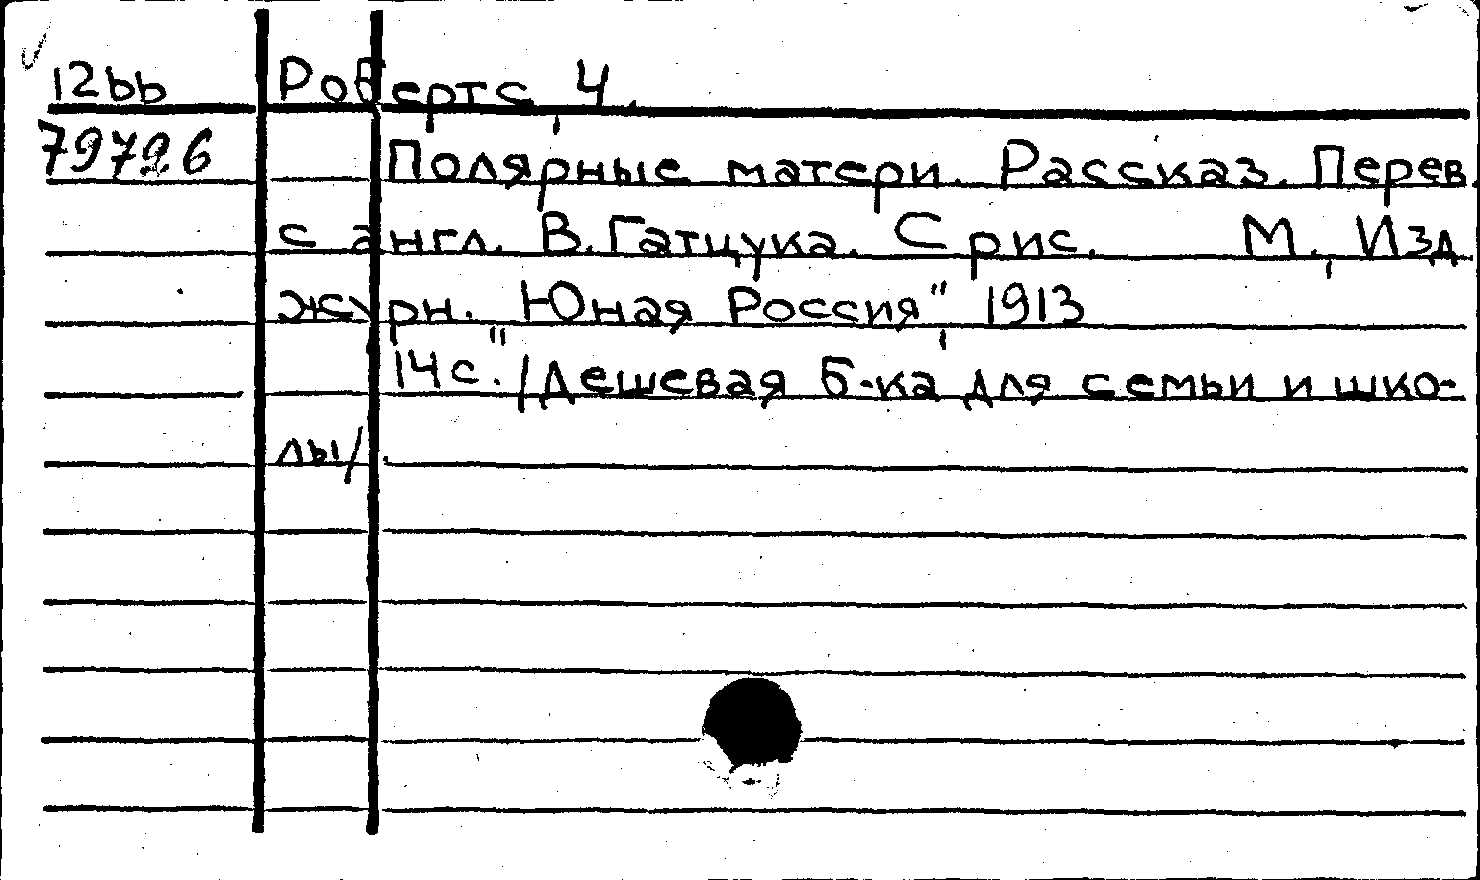 12bb Робертс, Ч.
79726 Полярные матери. Рассказ. Перев.
с англ. В. Гатцука. С рис. М., Изд
журн. "Юная Россия", 1913
14 с. /"Дешевая б-ка для семьи и шко-
лы/